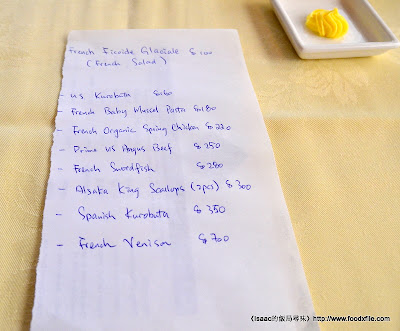 French Ficoide Glaciale $100
(French Salad)
- US Kurobuta $160
- French Baby Muscel Pasta $180
- French Organic Spring Chicken $220
- Prime US Angus Beef $250
- French Swordfish $280
- Alsaka King Scallops (2pcs) $300
- Spanish Kurobuta $350
- French Venison $700
《Isaac的飯局尋味》http://www.foodxfile.com